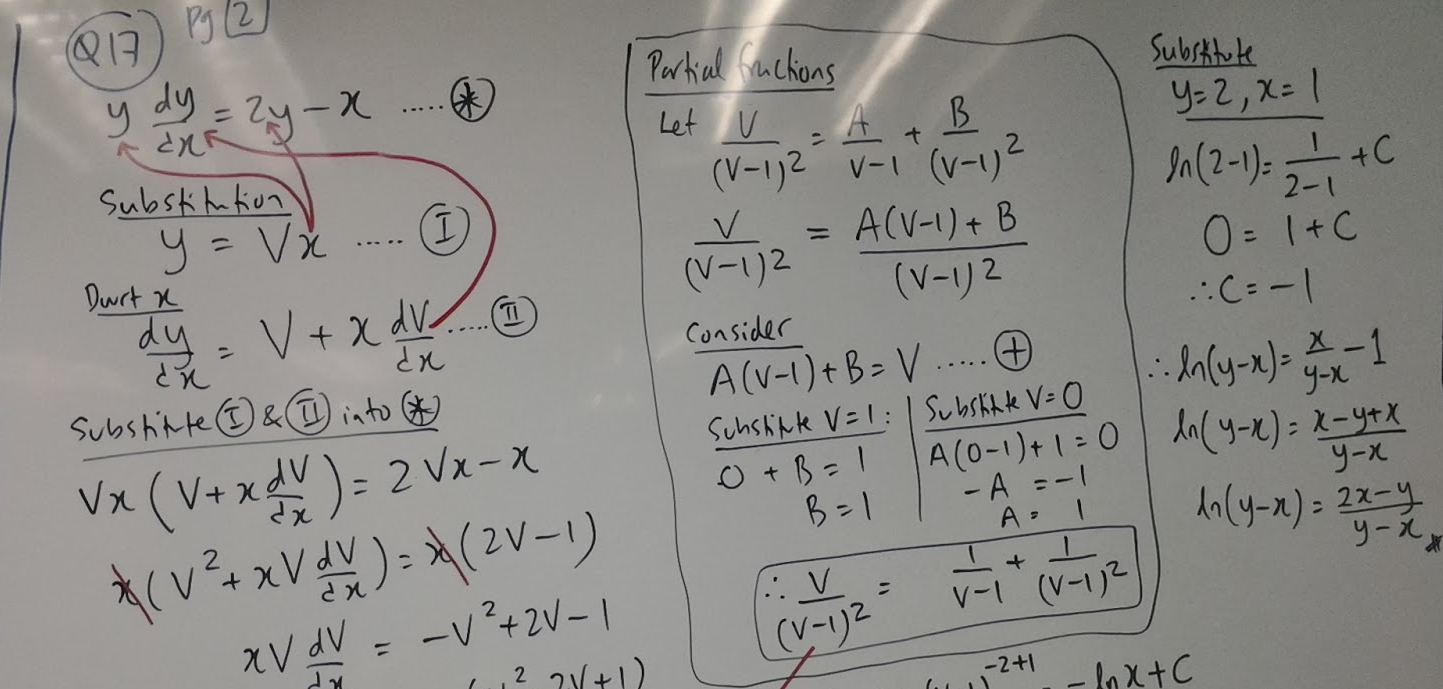 Q17 Pg 2
y dy/dx = 2y - x ..... *
Substitution
y = Vx ..... I
Dwrt x
dy/dx = V + x dV/dx ..... II
Substitute I & II into *
Vx (V + x dV/dx) = 2Vx - x
x(V² + xV dV/dx) = x(2V - 1)
xV dV/dx = -V² + 2V - 1
Partial fractions
Let V/(V-1)² = A/(V-1) + B/(V-1)²
V/(V-1)² = (A(V-1) + B)/(V-1)²
Consider
A(V-1) + B = V ..... +
Substitute V = 1:
0 + B = 1
B = 1
Substitute V = 0
A(0-1) + 1 = 0
-A = -1
A = 1
∴ V/(V-1)² = 1/(V-1) + 1/(V-1)²
-2+1
- ln x + C
Substitute
y = 2, x = 1
ln(2-1) = 1/(2-1) + C
0 = 1 + C
∴ C = -1
∴ ln(y-x) = x/(y-x) - 1
ln(y-x) = (x-y+x)/(y-x)
ln(y-x) = (2x-y)/(y-x)